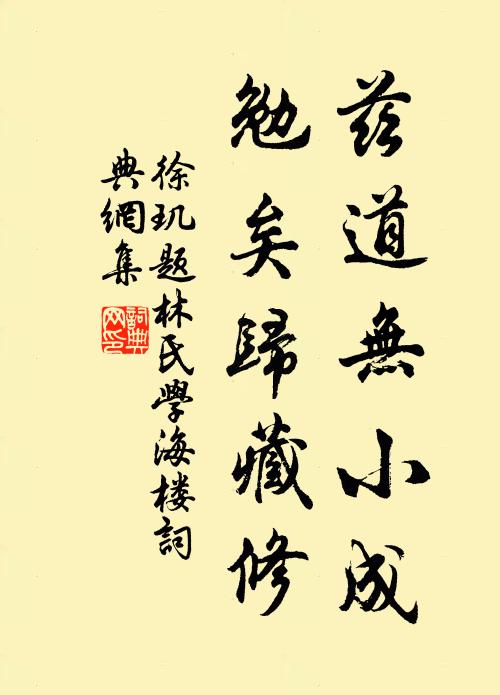 茲道無小成
勉矣歸藏修
徐玑题林氏學海楼詞
典網集
詞典
网印